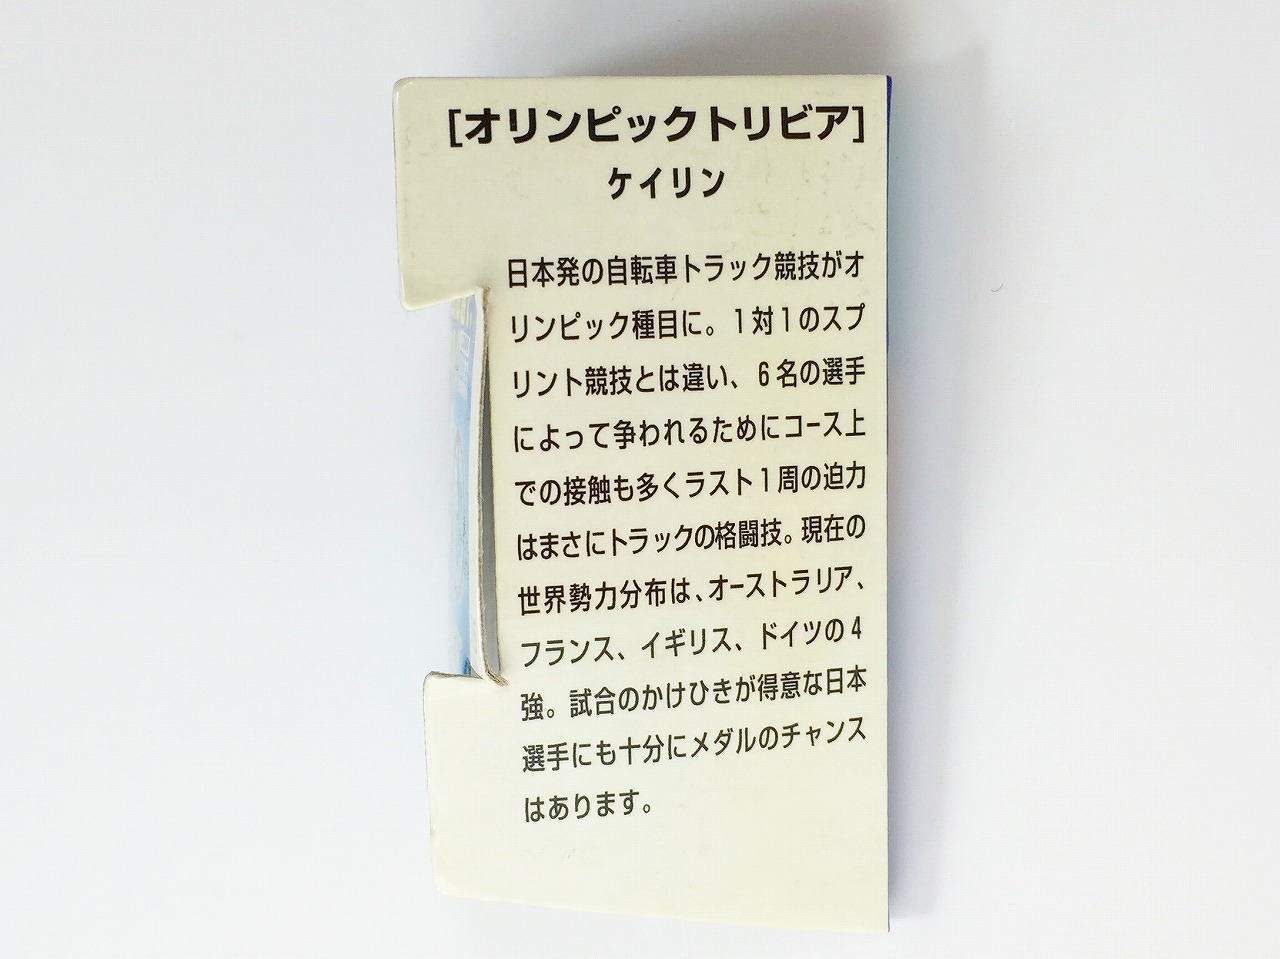 [オリンピックトリビア]
ケイリン
日本発の自転車トラック競技がオ
リンピック種目に。1対1のスプ
リント競技とは違い、6名の選手
によって争われるためにコース上
での接触も多くラスト1周の迫力
はまさにトラックの格闘技。現在の
世界勢力分布は、オーストラリア、
フランス、イギリス、ドイツの4
強。試合のかけひきが得意な日本
選手にも十分にメダルのチャンス
はあります。